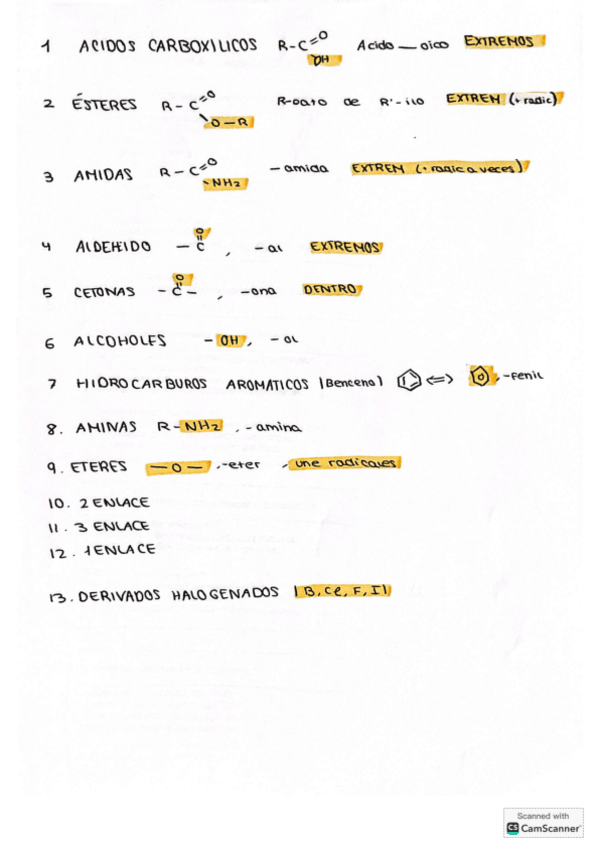 1 ACIDOS CARBOXILICOS R-C=O OH Acido — oico EXTREMOS
2 ÉSTERES R-C=O O-R R-oato de R'-ilo EXTREM (+ radic)
3 AMIDAS R-C=O -NH2 -amida EXTREM (+ radic a veces)
4 ALDEHIDO -C=O , -al EXTREMOS
5 CETONAS -C=O- , -ona DENTRO
6 ALCOHOLES -OH, -ol
7 HIDROCARBUROS AROMATICOS (Benceno) <=> , -fenil
8. AMINAS R-NH2 , -amina
9. ETERES -O- , -eter , une radicales
10. 2 ENLACE
11. 3 ENLACE
12. 1 ENLACE
13. DERIVADOS HALOGENADOS (B, Cl, F, I)
Scanned with
CS CamScanner